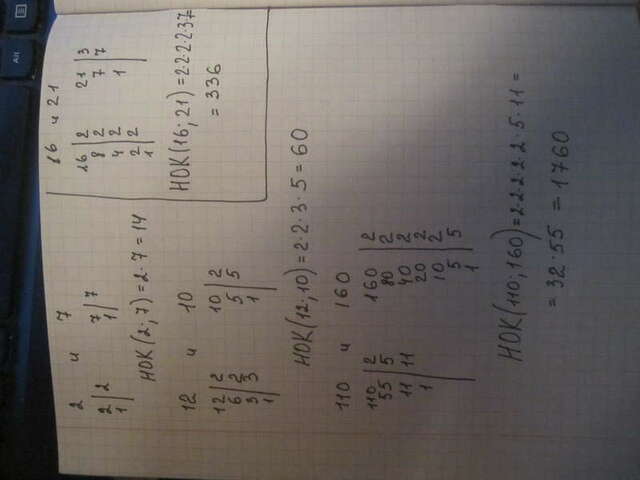 2 и 7
2 | 2 7 | 7
1 | 1 |
НОК(2; 7) = 2·7 = 14
16 и 21
16 | 2 21 | 3
8 | 2 7 | 7
4 | 2 1 |
2 | 2
1 |
НОК(16; 21) = 2·2·2·2·3·7 =
= 336
12 и 10
12 | 2 10 | 2
6 | 2 5 | 5
3 | 3 1 |
1 |
НОК(12; 10) = 2·2·3·5 = 60
110 и 160
110 | 2 160 | 2
55 | 5 80 | 2
11 | 11 40 | 2
1 | 20 | 2
10 | 2
5 | 5
1 |
НОК(110; 160) = 2·2·2·2·2·5·11 =
= 32·55 = 1760
Alt